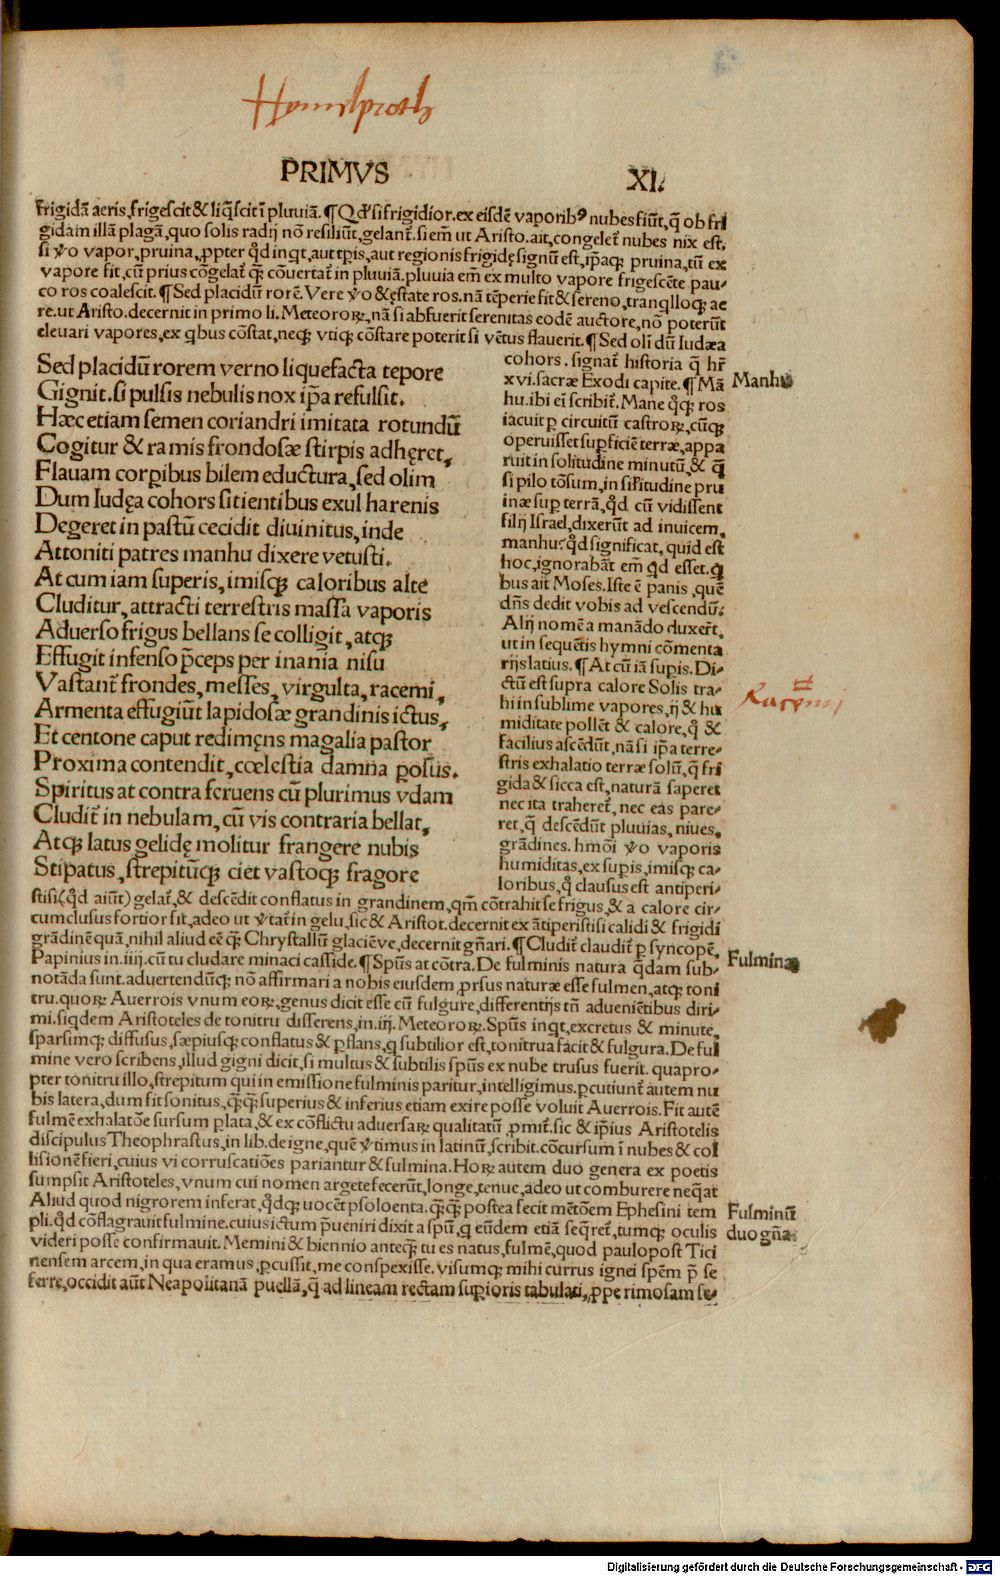 Hemelproeth
PRIMVS XI.
frigidā aeris, frigescit & liq̄scit ī pluuiā. ¶ Qd' si frigidior. ex eisdē vaporib⁹ nubes fiūt, q̄ ob fri
gidam illā plagā, quo solis radij nō resiliūt, gelant̄. si em̄ ut Aristo. ait, congelet̄ nubes nix est,
si v̄o vapor, pruina, ꝓpter qd̄ inqt, aut tp̄is, aut regionis frigidę signū est, ip̄aqꝫ pruina, tū ex
vapore fit, cū prius cōgelat̄ qꝫ cōuertat̄ in pluuiā. pluuia em̄ ex multo vapore frigescēte pau⸗
co ros coalescit. ¶ Sed placidū rorē. Vere v̄o & ęstate ros. nā tēperie fit & sereno, tranqlloqꝫ ae
re. ut Aristo. decernit in primo li. Meteoroꝝ, nā si abfuerit serenitas eodē auctore, nō poterūt
eleuari vapores, ex qbus cōstat, neqꝫ vtiqꝫ cōstare poterit si vētus flauerit. ¶ Sed oli dū Iudæa
Sed placidū rorem verno liquefacta tepore
Gignit. si pulsis nebulis nox ip̄a refulsit.
Hæc etiam semen coriandri imitata rotundū
Cogitur & ramis frondosæ stirpis adhęret,
Flauam corꝑibus bilem eductura, sed olim
Dum Iudęa cohors sitientibus exul harenis
Degeret in pastū cecidit diuinitus, inde
Attoniti patres manhu dixere vetusti.
At cum iam superis, imisqꝫ caloribus alte
Cluditur, attracti terrestris massa vaporis
Aduerso frigus bellans se colligit, atqꝫ
Effugit infenso p̄ceps per inania nisu
Vastant̄ frondes, messes, virgulta, racemi,
Armenta effugiūt lapidosæ grandinis ictus,
Et centone caput redimęns magalia pastor
Proxima contendit, cœlestia damna ꝑosus.
Spiritus at contra feruens cū plurimus vdam
Cludit̄ in nebulam, cū vis contraria bellat,
Atqꝫ latus gelidę molitur frangere nubis
Stipatus, strepitūqꝫ ciet vastoqꝫ fragore
cohors. signat̄ historia q̄ hr̄
xvi. sacræ Exodi capite. ¶ Mā
hu. ibi ei scribit̄. Mane qꝫ ros
iacuit ꝑ circuitū castroꝝ, cūqꝫ
operuisset suꝑficiē terræ, appa
ruit in solitudine minutū, & q̄
si pilo tōsum, in sil'itudine pru
inæ suꝑ terrā, qd̄ cū vidissent
filij Israel, dixerūt ad inuicem,
manhu? qd̄ significat, quid est
hoc, ignorabāt em̄ qd esset. q
bus ait Moses. Iste ē panis, quē
dn̄s dedit vobis ad vescendū:
Alij nomē a manādo duxer̄t,
ut in sequētis hymni cōmenta
rijs latius. ¶ At cū iā suꝑis. Di⸗
ctū est supra calore Solis tra⸗
hi in sublime vapores, ij & hu
miditate pollēt & calore, q̄ &
facilius ascēdūt, nā si ip̄a terre⸗
stris exhalatio terræ solū, q̄ fri
gida & sicca est, naturā saperet
nec ita traheret̄, nec eas pare⸗
ret, q̄ descēdūt pluuias, niues,
grādines. hmōi v̄o vaporis
humiditas, ex suꝑis, imisqꝫ ca⸗
loribus, q̄ clausus est antiperi⸗
stisi (qd̄ aiūt) gelat̄, & descēdit conflatus in grandinem, qm̄ cōtrahit se frigus, & a calore cir⸗
cumclusus fortior fit, adeo ut v̄tat̄ in gelu, sic & Aristot. decernit ex ātiperistisi calidi & frigidi
grādinē quā, nihil aliud eē qꝫ Chrystallū glaciēve, decernit gn̄ari. ¶ Cludit̄ claudit̄ ꝑ syncopē,
Papinius in .iiij. cū tu cludare minaci casside. ¶ Spūs at cōtra. De fulminis natura q̄dam sub⸗
notāda sunt. aduertendūqꝫ nō affirmari a nobis eiusdem, ꝓrsus naturæ esse fulmen, atqꝫ toni
tru. quoꝝ Auerrois vnum eoꝝ, genus dicit esse cū fulgure, differentijs tn̄ adueniētibus diri⸗
mi. siqdem Aristoteles de tonitru disserens, in .iij. Meteoroꝝ. Spūs inqt, excretus & minute,
sparsimqꝫ diffusus, sæpiusqꝫ conflatus & ꝑflans, q subtilior est, tonitrua facit & fulgura. De ful
mine vero scribens, illud gigni dicit, si multus & subtilis spūs ex nube trusus fuerit. quapro⸗
pter tonitru illo, strepitum qui in emissione fulminis paritur, intelligimus. ꝑcutiunt̄ autem nu
bis latera, dum fit sonitus, q̄qꝫ superius & inferius etiam exire posse voluit Auerrois. Fit autē
fulmē exhalatōe sursum ꝑlata, & ex cōflictu aduersaꝝ qualitatū ꝓmit̄. sic & ip̄ius Aristotelis
discipulus Theophrastus, in lib. de igne, quē v̄timus in latinū, scribit. cōcursum ī nubes & col
lisionē fieri, cuius vi corruscatiōes pariantur & fulmina. Hoꝝ autem duo genera ex poetis
sumpsit Aristoteles, vnum cui nomen argete fecerūt, longe, tenue, adeo ut comburere neq̄at
Aliud quod nigrorem inferat, qd̄qꝫ uocēt psoloenta. q̄qꝫ postea fecit mētōem Ephesini tem
pli. qd̄ cōflagrauit fulmine. cuius ictum p̄ueniri dixit a spū, q eūdem etiā seq̄ret̄, tumqꝫ oculis
videri posse confirmauit. Memini & biennio anteqꝫ tu es natus, fulmē, quod paulopost Tici
nensem arcem, in qua eramus, ꝑcussit, me conspexisse. visumqꝫ mihi currus ignei spēm p̄ se
ferre, occidit aūt Neapolitanā puellā, q̄ ad lineam rectam suꝑioris tabulati, ꝓpe rimosam se⸗
Manhu
Racemi
Fulmina
Fulminū
duo gn̄a.
Digitalisierung gefördert durch die Deutsche Forschungsgemeinschaft - DFG